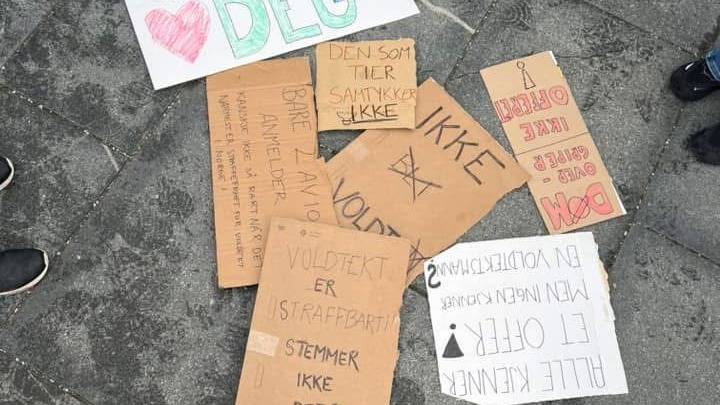 DEG
DEN SOM
TIER
SAMTYKKER
IKKE
BARE 2 AV 10
ANMELDER
KANSKJE IKKE SÅ RART NÅR DET
NÆRMEST ER STRAFFEFRITT FOR VOLDTEKT
I NORGE!
IKKE
VOLDT
DØM
OVER-
GRIPER
IKKE
OFFERET
ALLE KJENNER
ET OFFER
MEN INGEN KJENNER
EN VOLDTEKTSMANN
VOLDTEKT
ER
STRAFFBART!!
STEMMER
IKKE